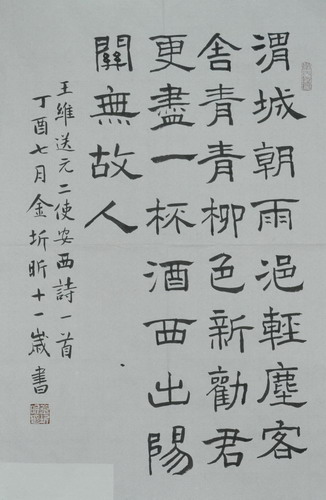 渭城朝雨浥輕塵客
舍青青柳色新勸君
更盡一杯酒西出陽
關無故人
王維送元二使安西詩一首
丁酉七月金圻昕十一歲書